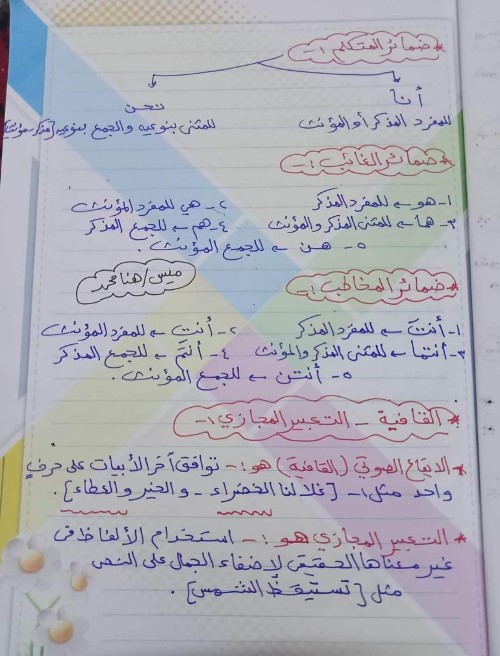 * ضمائر المتكلم :-
أنا
نحن
للمفرد المذكر أو المؤنث
للمثنى بنوعيه والجمع بنوعيه [مذكر - مؤنث]
* ضمائر الغائب :-
١- هو ← للمفرد المذكر ٢- هي للمفرد المؤنث
٣- هما ← للمثنى المذكر والمؤنث ٤- هم ← للجمع المذكر
٥- هن ← للجمع المؤنث .
* ضمائر المخاطب :-
ميس/ هنا محمد
١- أنتَ ← للمفرد المذكر ٢- أنتِ ← للمفرد المؤنث
٣- أنتما ← للمثنى المذكر والمؤنث ٤- أنتم ← للجمع المذكر
٥- أنتن ← للجمع المؤنث .
* القافية - التعبير المجازي :-
* الايقاع الصوتي (القافية) هو :- توافق آخر الأبيات على حرفٍ
واحد مثل :- [غلالنا الخضراء - والخير والعطاء] .
* التعبير المجازي هو :- استخدام الألفاظ فى
غير معناها الحقيقى لإضفاء الجمال على النص
مثل [تستيقظ الشمس] .